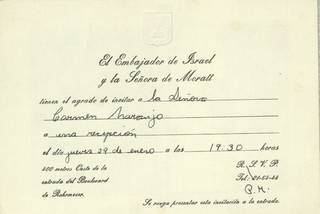 El Embajador de Israel
y la Señora de Moratt
tienen el agrado de invitar a la Señora
Carmen Naranjo
a una recepción
el día jueves 29 de enero a las 19:30 horas
400 metros Oeste de la
entrada del Boulevard
de Rohrmoser.
R. S. V. P.
Tel:
P.M.
Se ruega presentar esta invitación a la entrada.